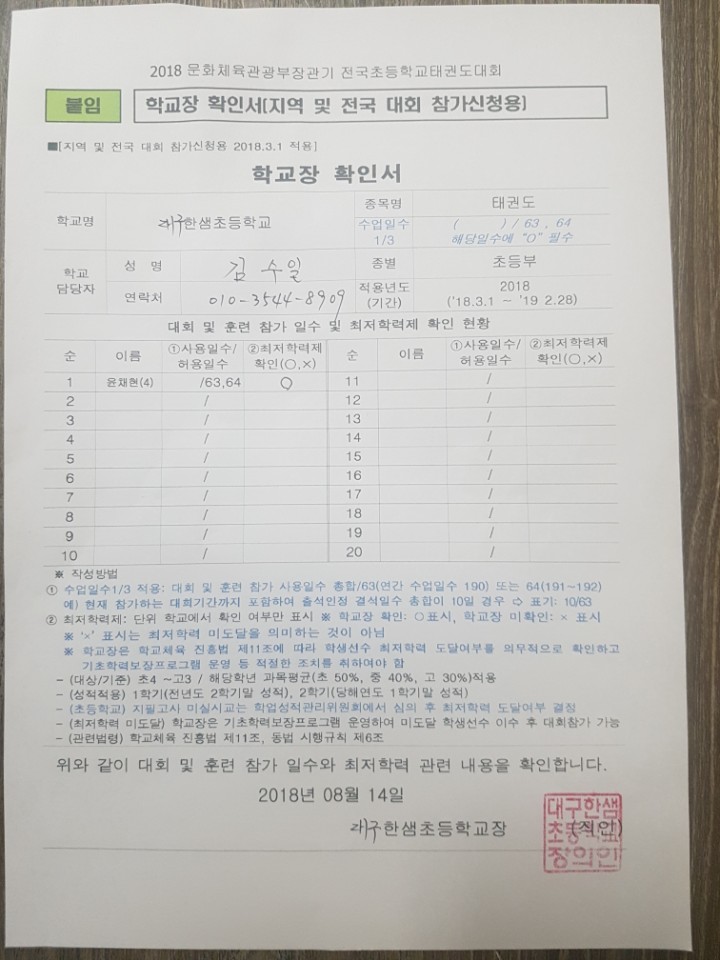 2018 문화체육관광부장관기 전국초등학교태권도대회
붙임 학교장 확인서(지역 및 전국 대회 참가신청용)
■[지역 및 전국 대회 참가신청용 2018.3.1 적용]
학교장 확인서
학교명 대구한샘초등학교 종목명 태권도
수업일수 1/3 ( ) / 63 , 64
해당일수에 "O" 필수
학교 담당자 성 명 김수일 종별 초등부
연락처 010-3544-8909 적용년도 (기간) 2018 ('18.3.1 ~ '19 2.28)
대회 및 훈련 참가 일수 및 최저학력제 확인 현황
순 이름 ①사용일수/허용일수 ②최저학력제 확인(○,×) 순 이름 ①사용일수/허용일수 ②최저학력제 확인(○,×)
1 윤채현(4) /63,64 ○ 11 /
2 / 12 /
3 / 13 /
4 / 14 /
5 / 15 /
6 / 16 /
7 / 17 /
8 / 18 /
9 / 19 /
10 / 20 /
※ 작성방법
① 수업일수1/3 적용: 대회 및 훈련 참가 사용일수 총합/63(연간 수업일수 190) 또는 64(191~192)
예) 현재 참가하는 대회기간까지 포함하여 출석인정 결석일수 총합이 10일 경우 ⇨ 표기: 10/63
② 최저학력제: 단위 학교에서 확인 여부만 표시 ※ 학교장 확인: ○표시, 학교장 미확인: × 표시
※ '×' 표시는 최저학력 미도달을 의미하는 것이 아님
※ 학교장은 학교체육 진흥법 제11조에 따라 학생선수 최저학력 도달여부를 의무적으로 확인하고
기초학력보장프로그램 운영 등 적절한 조치를 취하여야 함
- (대상/기준) 초4 ~고3 / 해당학년 과목평균(초 50%, 중 40%, 고 30%)적용
- (성적적용) 1학기(전년도 2학기말 성적), 2학기(당해연도 1학기말 성적)
- (초등학교) 지필고시 미실시교는 학업성적관리위원회에서 심의 후 최저학력 도달여부 결정
- (최저학력 미도달) 학교장은 기초학력보장프로그램 운영하여 미도달 학생선수 이수 후 대회참가 가능
- (관련법령) 학교체육 진흥법 제11조, 동법 시행규칙 제6조
위와 같이 대회 및 훈련 참가 일수와 최저학력 관련 내용을 확인합니다.
2018년 08월 14일
대구한샘초등학교장 (직인)
대구한샘
초등학교
장의인